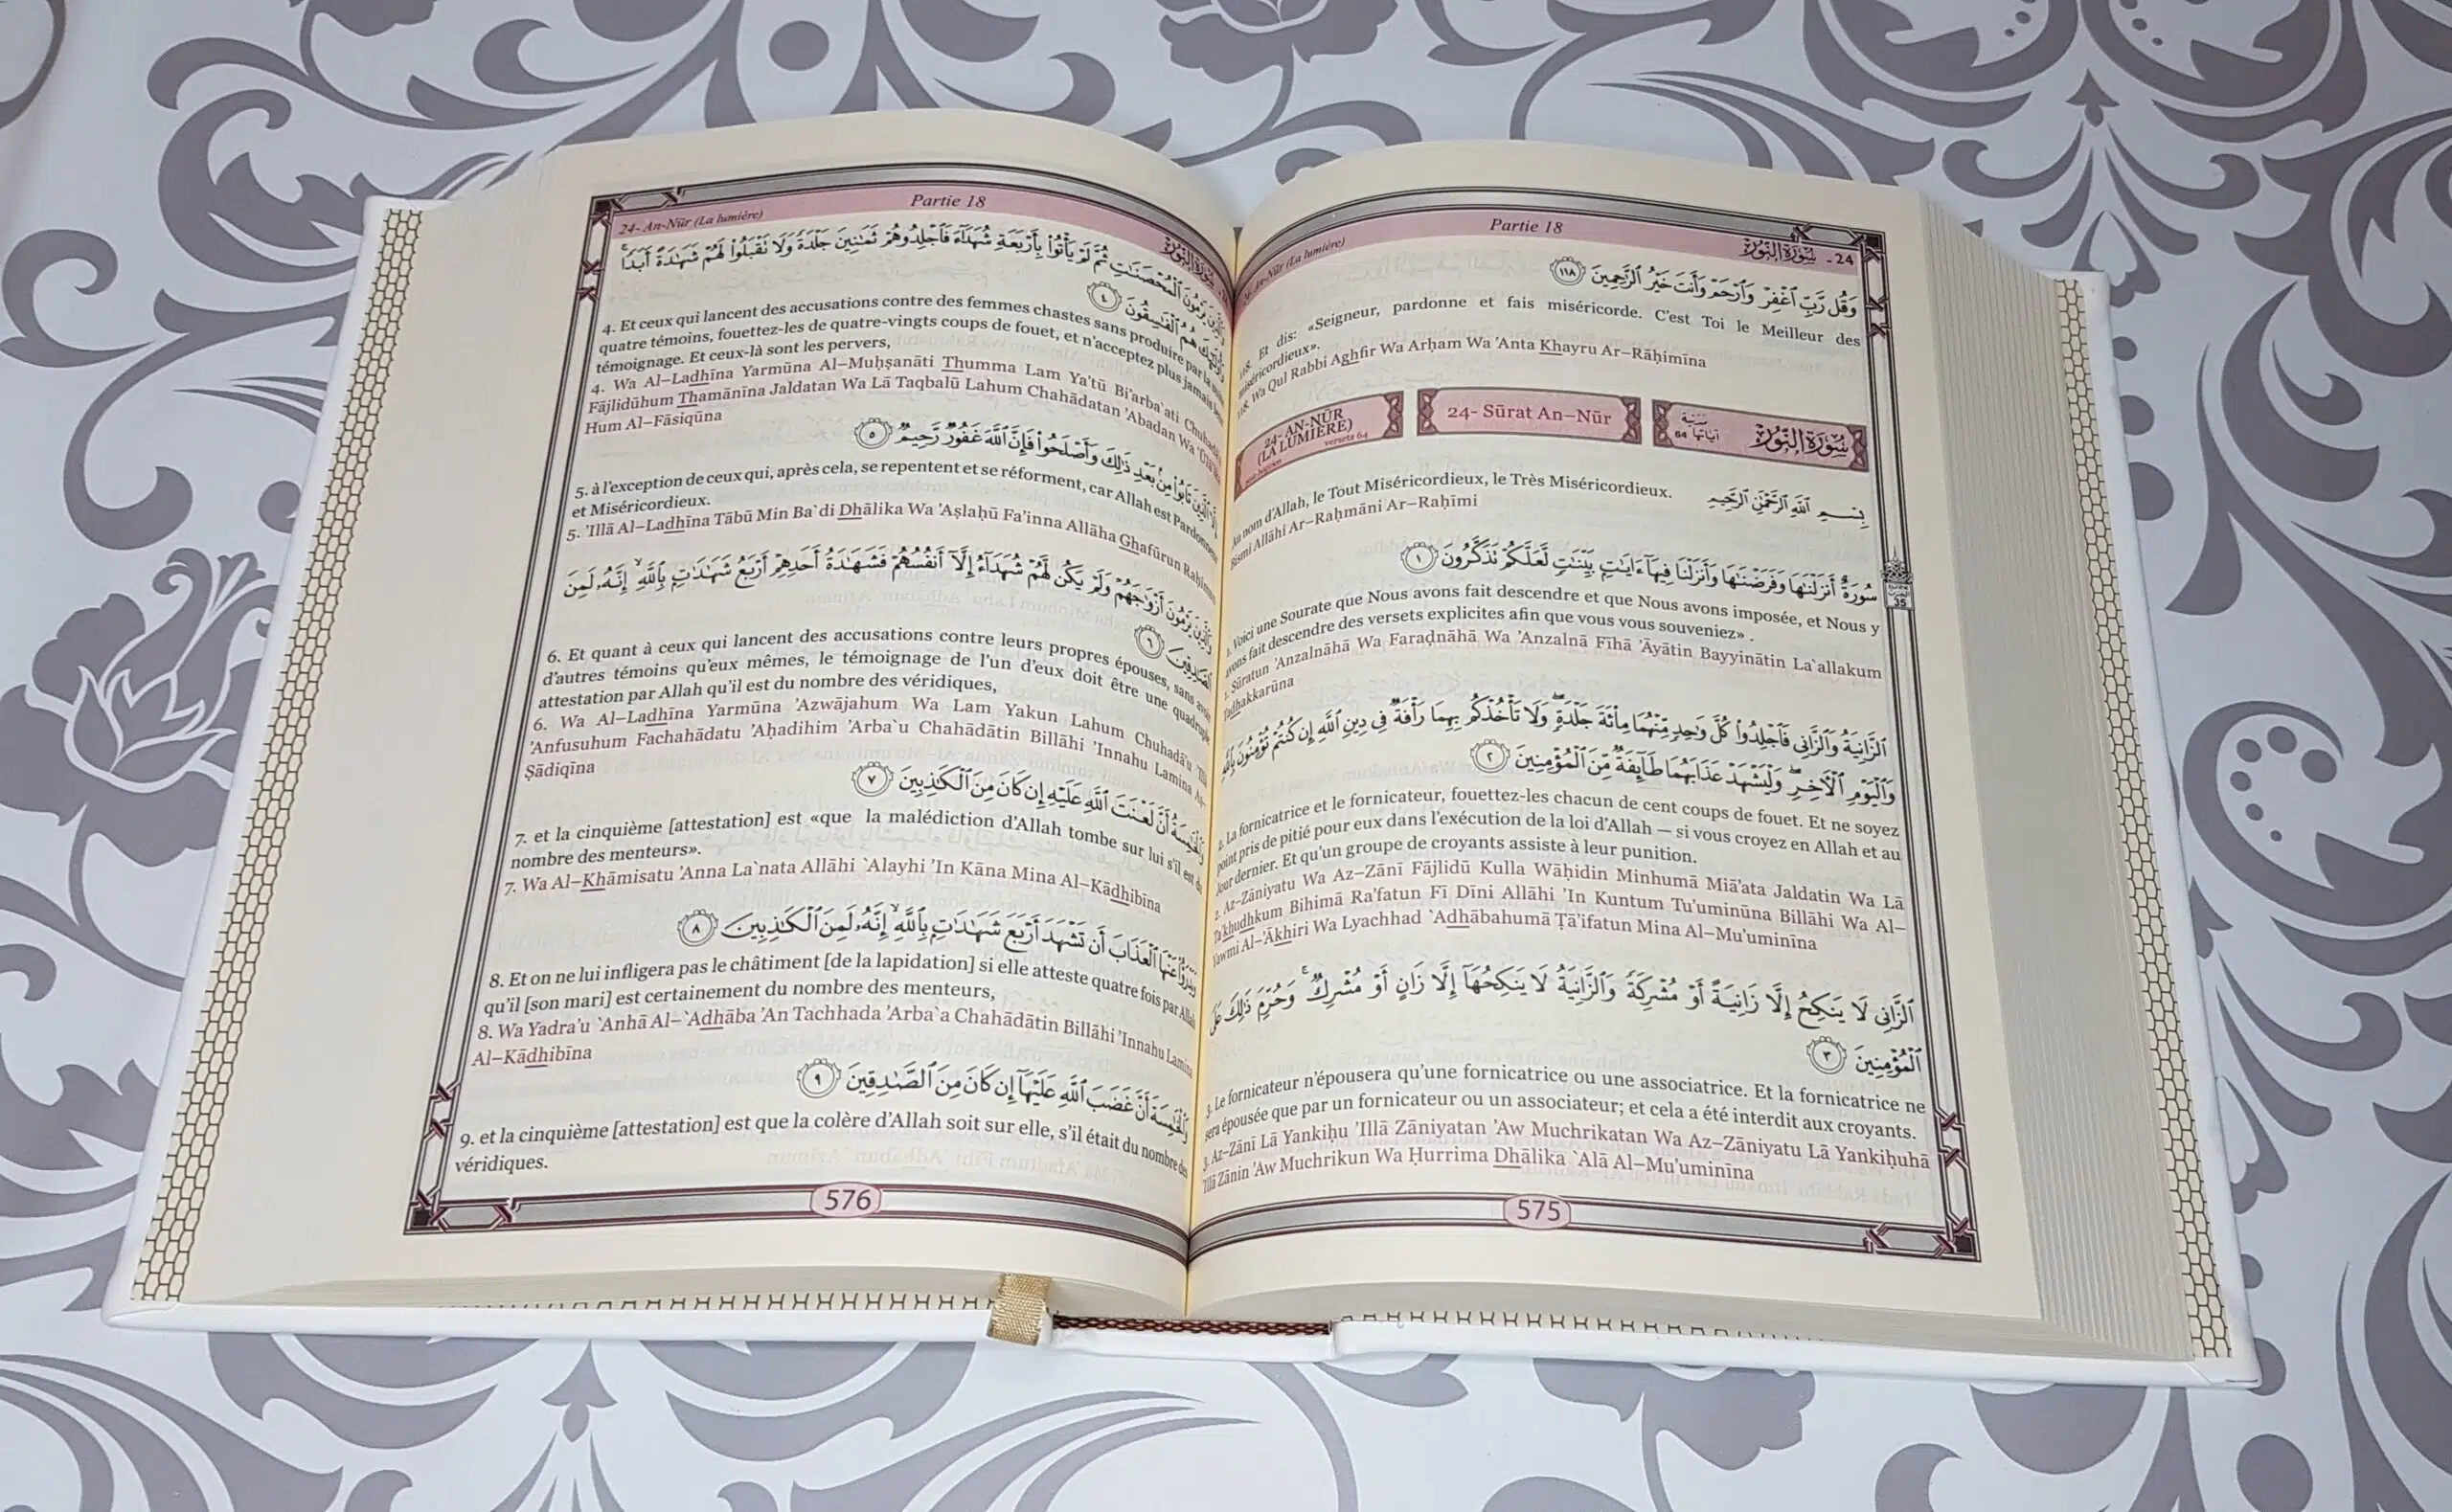 Partie 18
24- An-Nūr (La lumière)
24 - سُورَةُ النُّورِ
وَقُل رَّبِّ ٱغۡفِرۡ وَٱرۡحَمۡ وَأَنتَ خَيۡرُ ٱلرَّٰحِمِينَ ١١٨
118. Et dis: «Seigneur, pardonne et fais miséricorde. C’est Toi le Meilleur des
miséricordieux».
118. Wa Qul Rabbi Aghfir Wa Arḥam Wa ’Anta Khayru Ar–Rāḥimīna
24- AN-NŪR
(LA LUMIÈRE)
versets 64
24- Sūrat An–Nūr
سُورَةُ النُّورِ
آياتها 64
Au nom d’Allah, le Tout Miséricordieux, le Très Miséricordieux.
بِسۡمِ ٱللَّهِ ٱلرَّحۡمَٰنِ ٱلرَّحِيمِ
Bismi Allāhi Ar–Raḥmāni Ar–Raḥīmi
سُورَةٌ أَنزَلۡنَٰهَا وَفَرَضۡنَٰهَا وَأَنزَلۡنَا فِيهَآ ءَايَٰتِۭ بَيِّنَٰتٖ لَّعَلَّكُمۡ تَذَكَّرُونَ ١
1. Voici une Sourate que Nous avons fait descendre et que Nous avons imposée, et Nous y
avons fait descendre des versets explicites afin que vous vous souveniez» .
1. Sūratun ’Anzalnāhā Wa Faraḍnāhā Wa ’Anzalnā Fīhā ’Āyātin Bayyinātin La`allakum
Tadhakkarūna
ٱلزَّانِيَةُ وَٱلزَّانِي فَٱجۡلِدُواْ كُلَّ وَٰحِدٖ مِّنۡهُمَا مِاْئَةَ جَلۡدَةٖۖ وَلَا تَأۡخُذۡكُم بِهِمَا رَأۡفَةٞ فِي دِينِ ٱللَّهِ إِن كُنتُمۡ تُؤۡمِنُونَ بِٱللَّهِ
وَٱلۡيَوۡمِ ٱلۡأٓخِرِۖ وَلۡيَشۡهَدۡ عَذَابَهُمَا طَآئِفَةٞ مِّنَ ٱلۡمُؤۡمِنِينَ ٢
2. La fornicatrice et le fornicateur, fouettez-les chacun de cent coups de fouet. Et ne soyez
point pris de pitié pour eux dans l’exécution de la loi d’Allah — si vous croyez en Allah et au
Jour dernier. Et qu’un groupe de croyants assiste à leur punition.
2. Az–Zāniyatu Wa Az–Zānī Fājlidū Kulla Wāḥidin Minhumā Miā’ata Jaldatin Wa Lā
Ta’khudhkum Bihimā Ra’fatun Fī Dīni Allāhi ’In Kuntum Tu’uminūna Billāhi Wa Al–
Yawmi Al–’Ākhiri Wa Lyachhad `Adhābahumā Ṭā’ifatun Mina Al–Mu’uminīna
ٱلزَّانِي لَا يَنكِحُ إِلَّا زَانِيَةً أَوۡ مُشۡرِكَةٗ وَٱلزَّانِيَةُ لَا يَنكِحُهَآ إِلَّا زَانٍ أَوۡ مُشۡرِكٞۚ وَحُرِّمَ ذَٰلِكَ عَلَى
ٱلۡمُؤۡمِنِينَ ٣
3. Le fornicateur n’épousera qu’une fornicatrice ou une associatrice. Et la fornicatrice ne
sera épousée que par un fornicateur ou un associateur; et cela a été interdit aux croyants.
3. Az–Zānī Lā Yankiḥu ’Illā Zāniyatan ’Aw Muchrikatan Wa Az–Zāniyatu Lā Yankiḥuhā
’Illā Zānin ’Aw Muchrikun Wa Ḥurrima Dhālika `Alā Al–Mu’uminīna
575
35
24- An-Nūr (La lumière)
Partie 18
سُورَةُ النُّورِ
وَٱلَّذِينَ يَرۡمُونَ ٱلۡمُحۡصَنَٰتِ ثُمَّ لَمۡ يَأۡتُواْ بِأَرۡبَعَةِ شُهَدَآءَ فَٱجۡلِدُوهُمۡ ثَمَٰنِينَ جَلۡدَةٗ وَلَا تَقۡبَلُواْ لَهُمۡ شَهَٰدَةً أَبَدٗاۚ
وَأُوْلَٰٓئِكَ هُمُ ٱلۡفَٰسِقُونَ ٤
4. Et ceux qui lancent des accusations contre des femmes chastes sans produire par la suite
quatre témoins, fouettez-les de quatre-vingts coups de fouet, et n’acceptez plus jamais leur
témoignage. Et ceux-là sont les pervers,
4. Wa Al–Ladhīna Yarmūna Al–Muḥṣanāti Thumma Lam Ya’tū Bi’arba`ati Chuhadā’a
Fājlidūhum Thamānīna Jaldatan Wa Lā Taqbalū Lahum Chahādatan ’Abadan Wa ’Ūlā’ika
Hum Al–Fāsiqūna
إِلَّا ٱلَّذِينَ تَابُواْ مِنۢ بَعۡدِ ذَٰلِكَ وَأَصۡلَحُواْ فَإِنَّ ٱللَّهَ غَفُورٞ رَّحِيمٞ ٥
5. à l’exception de ceux qui, après cela, se repentent et se réforment, car Allah est Pardonneur
et Miséricordieux.
5. ’Illā Al–Ladhīna Tābū Min Ba`di Dhālika Wa ’Aṣlaḥū Fa’inna Allāha Ghafūrun Raḥīmun
وَٱلَّذِينَ يَرۡمُونَ أَزۡوَٰجَهُمۡ وَلَمۡ يَكُن لَّهُمۡ شُهَدَآءُ إِلَّآ أَنفُسُهُمۡ فَشَهَٰدَةُ أَحَدِهِمۡ أَرۡبَعُ شَهَٰدَٰتِۭ بِٱللَّهِ إِنَّهُۥ لَمِنَ
ٱلصَّٰدِقِينَ ٦
6. Et quant à ceux qui lancent des accusations contre leurs propres épouses, sans avoir
d’autres témoins qu’eux mêmes, le témoignage de l’un d’eux doit être une quadruple
attestation par Allah qu’il est du nombre des véridiques,
6. Wa Al–Ladhīna Yarmūna ’Azwājahum Wa Lam Yakun Lahum Chuhadā’u ’Illā
’Anfusuhum Fachahādatu ’Aḥadihim ’Arba`u Chahādātin Billāhi ’Innahu Lamina Aṣ–
Ṣādiqīna
وَٱلۡخَٰمِسَةُ أَنَّ لَعۡنَتَ ٱللَّهِ عَلَيۡهِ إِن كَانَ مِنَ ٱلۡكَٰذِبِينَ ٧
7. et la cinquième [attestation] est «que la malédiction d’Allah tombe sur lui s’il est du
nombre des menteurs».
7. Wa Al–Khāmisatu ’Anna La`nata Allāhi `Alayhi ’In Kāna Mina Al–Kādhibīna
وَيَدۡرَؤُاْ عَنۡهَا ٱلۡعَذَابَ أَن تَشۡهَدَ أَرۡبَعَ شَهَٰدَٰتِۭ بِٱللَّهِ إِنَّهُۥ لَمِنَ ٱلۡكَٰذِبِينَ ٨
8. Et on ne lui infligera pas le châtiment [de la lapidation] si elle atteste quatre fois par Allah
qu’il [son mari] est certainement du nombre des menteurs,
8. Wa Yadra’u `Anhā Al–`Adhāba ’An Tachhada ’Arba`a Chahādātin Billāhi ’Innahu Lamina
Al–Kādhibīna
وَٱلۡخَٰمِسَةَ أَنَّ غَضَبَ ٱللَّهِ عَلَيۡهَآ إِن كَانَ مِنَ ٱلصَّٰدِقِينَ ٩
9. et la cinquième [attestation] est que la colère d’Allah soit sur elle, s’il était du nombre des
véridiques.
576